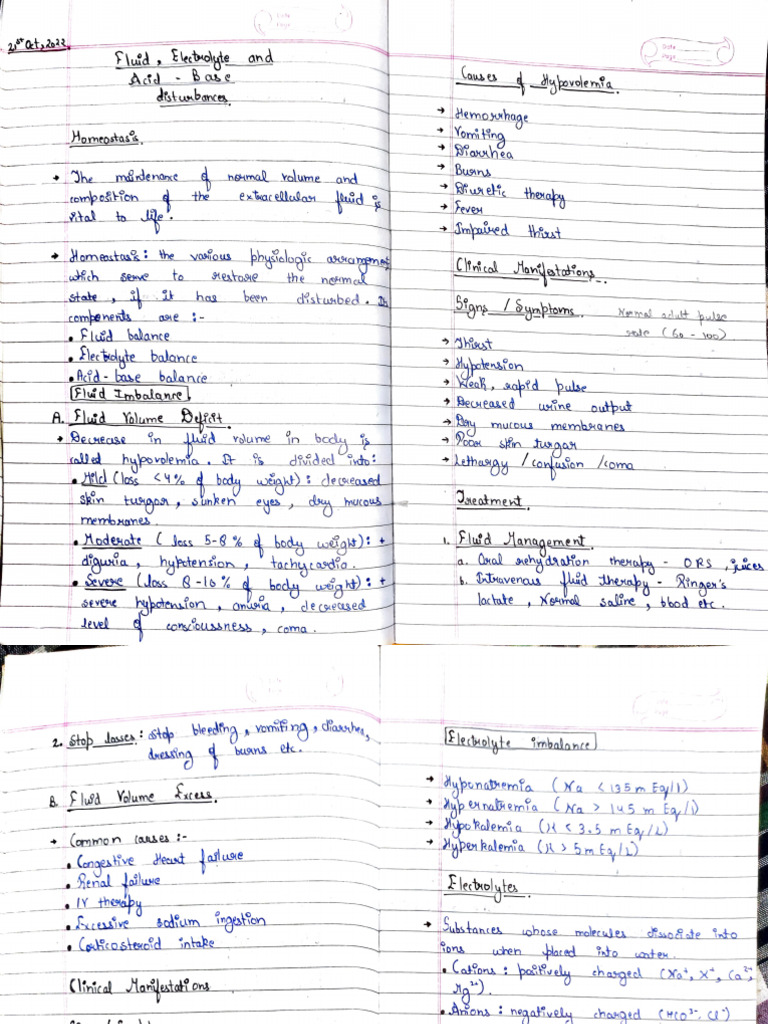 21st Oct, 2022
Fluid, Electrolyte and
Acid - Base
disturbances.
Homeostasis.
→ The maintenance of normal volume and
composition of the extracellular fluid is
vital to life.
→ Homeostasis: the various physiologic arrangement
which serve to restore the normal
state, if it has been disturbed. Its
components are :-
• Fluid balance
• Electrolyte balance
• Acid-base balance
Fluid Imbalance
A. Fluid Volume Deficit.
→ Decrease in fluid volume in body is
called hypovolemia. It is divided into:
• Mild (loss <4% of body weight): decreased
skin turgor, sunken eyes, dry mucous
membranes.
• Moderate (loss 5-8% of body weight): +
oliguria, hypotension, tachycardia.
• Severe (loss 8-10% of body weight): +
severe hypotension, anuria, decreased
level of consciousness, coma.
Date
Page
Causes of Hypovolemia.
→ Hemorrhage
→ Vomiting
→ Diarrhea
→ Burns
→ Diuretic therapy
→ Fever
→ Impaired thirst
Clinical Manifestations.
Signs / Symptoms.
Normal adult pulse
rate (60 - 100)
→ Thirst
→ Hypotension
→ Weak, rapid pulse
→ Decreased urine output
→ Dry mucous membranes
→ Poor skin turgar
→ Lethargy / confusion / coma
Treatment.
1. Fluid Management.
a. Oral rehydration therapy - ORS, juices
b. Intravenous fluid therapy - Ringer's
lactate, Normal saline, blood etc.
2. Stop losses: stop bleeding, vomiting, diarrhea,
dressing of burns etc.
B. Fluid Volume Excess.
→ Common causes :-
• Congestive Heart failure
• Renal failure
• IV therapy
• Excessive sodium ingestion
• Corticosteroid intake
Clinical Manifestations
Electrolyte imbalance
→ Hyponatremia (Na < 135 m Eq/l)
→ Hypernatremia (Na > 145 m Eq/l)
→ Hypokalemia (K < 3.5 m Eq/L)
→ Hyperkalemia (K > 5 m Eq/L)
Electrolytes
→ Substances whose molecules dissociate into
ions when placed into water.
• Cations: positively charged (Na⁺, K⁺, Ca²⁺,
Mg²⁺).
• Anions: negatively charged (HCO³⁻, Cl⁻)